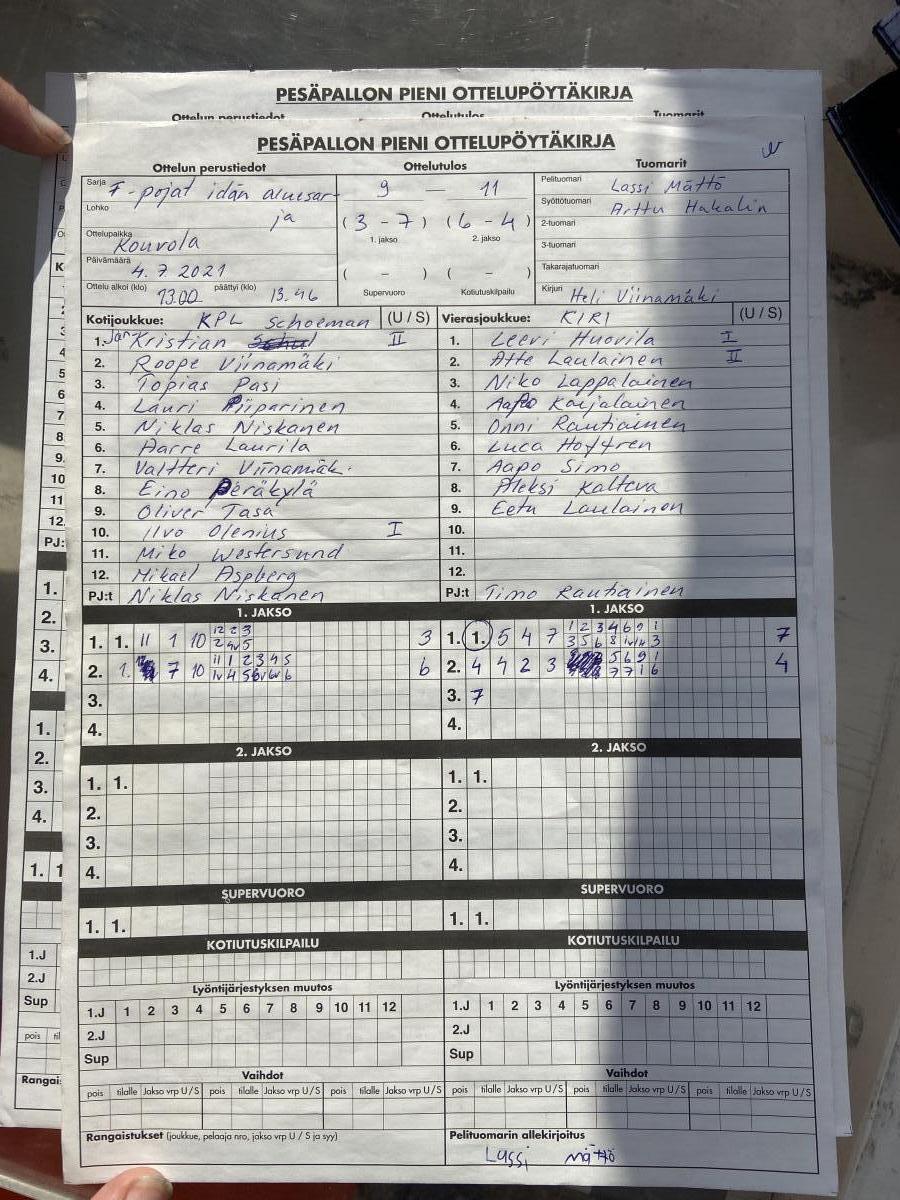 PESÄPALLON PIENI OTTELUPÖYTÄKIRJA
Ottelun perustiedot Ottelutulos Tuomarit
PESÄPALLON PIENI OTTELUPÖYTÄKIRJA
Ottelun perustiedot Ottelutulos Tuomarit
Sarja F-pojat idän aluesar-
Lohko ja
Ottelupaikka Kouvola
Päivämäärä 4.7.2021
Ottelu alkoi (klo) 13.00 päättyi (klo) 13.46
9 — 11
(3 - 7) (6 - 4)
1. jakso 2. jakso
( - ) ( - )
Supervuoro Kotiutuskilpailu
Pelituomari Lassi Mättö
Syöttötuomari Arttu Hakalin
2-tuomari
3-tuomari
Takarajatuomari
Kirjuri Heli Viinamäki
Kotijoukkue: KPL Schoeman (U / S)
1. Jan Kristian II
2. Roope Viinamäki
3. Topias Pasi
4. Lauri Piiparinen
5. Niklas Niskanen
6. Aarre Laurila
7. Valtteri Viinamäk.
8. Eino Peräkylä
9. Oliver Tasa
10. Ilvo Olenius I
11. Miko Westersund
12. Mikael Aspberg
PJ:t Niklas Niskanen
Vierasjoukkue: KIRI (U / S)
1. Leevi Huovila I
2. Atte Laulainen II
3. Niko Lappalainen
4. Karjalainen
5. Onni Rautiainen
6. Luca Hoffren
7. Aapo Simo
8. Aleksi Kalteva
9. Eetu Laulainen
10.
11.
12.
PJ:t Timo Rautiainen
1. JAKSO
1. 1. 11 1 10 12 2 3 3
2. 1. 7 10 11 1 2 3 4 5 6
3.
4.
1. JAKSO
1. 1. 5 4 7 1 2 3 4 6 9 1 7
2. 4 4 2 3 5 6 9 1 4
7 7 1 6
3. 7
4.
2. JAKSO
1. 1.
2.
3.
4.
2. JAKSO
1. 1.
2.
3.
4.
SUPERVUORO
1. 1.
SUPERVUORO
1. 1.
KOTIUTUSKILPAILU
KOTIUTUSKILPAILU
Lyöntijärjestyksen muutos
1.J 1 2 3 4 5 6 7 8 9 10 11 12
2.J
Sup
Lyöntijärjestyksen muutos
1.J 1 2 3 4 5 6 7 8 9 10 11 12
2.J
Sup
Vaihdot
pois tilalle Jakso vrp U / S pois tilalle Jakso vrp U / S pois tilalle Jakso vrp U / S
Vaihdot
pois tilalle Jakso vrp U / S pois tilalle Jakso vrp U / S pois tilalle Jakso vrp U / S
Rangaistukset (joukkue, pelaaja nro, jakso vrp U / S ja syy)
Pelituomarin allekirjoitus
Lassi Mättö